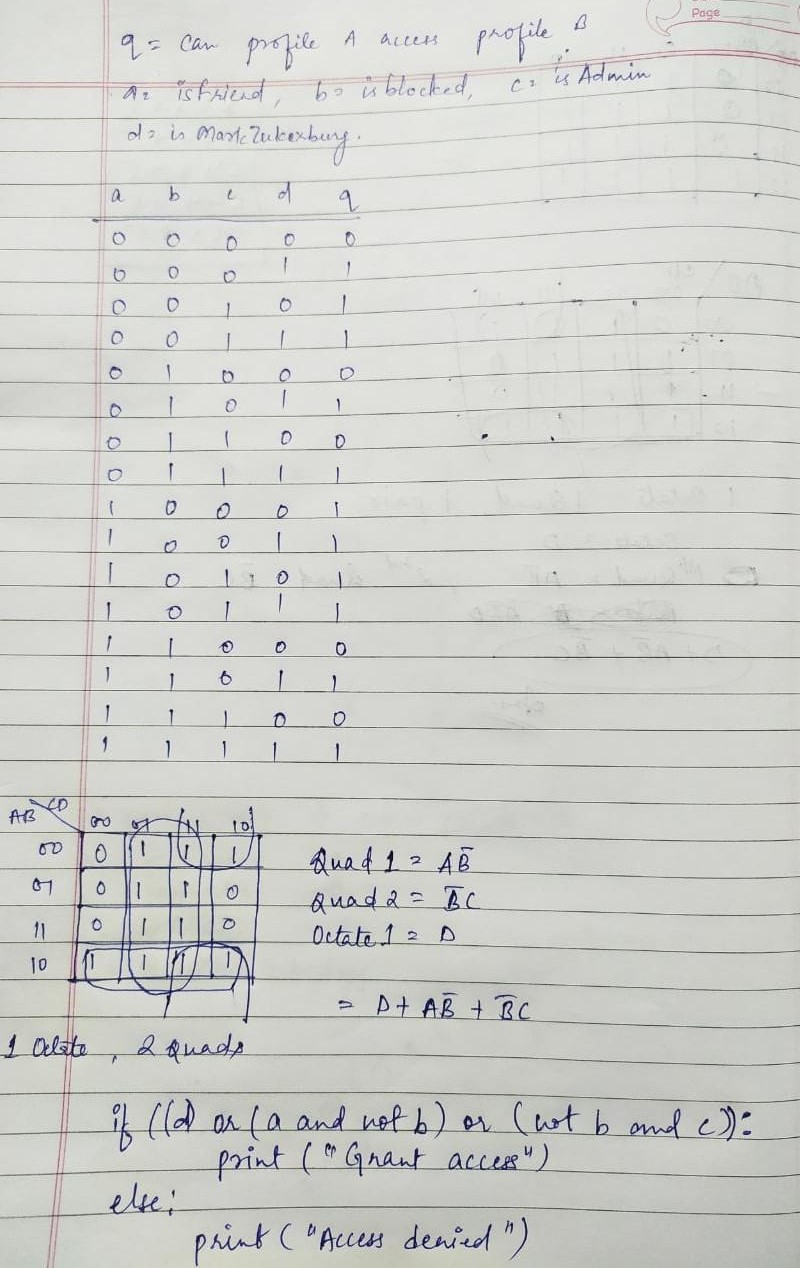 Page
q = Can profile A access profile B
a = is friend, b = is blocked, c = is Admin
d = is Mark Zukexburg.
a b c d q
0 0 0 0 0
0 0 0 1 1
0 0 1 0 1
0 0 1 1 1
0 1 0 0 0
0 1 0 1 1
0 1 1 0 0
0 1 1 1 1
1 0 0 0 1
1 0 0 1 1
1 0 1 0 1
1 0 1 1 1
1 1 0 0 0
1 1 0 1 1
1 1 1 0 0
1 1 1 1 1
AB CD 00 01 11 10
00 0 1 1 1
01 0 1 1 0
11 0 1 1 0
10 1 1 1 1
Quad 1 = AB̅
Quad 2 = B̅C
Octate 1 = D
= D + AB̅ + B̅C
1 Octate, 2 Quads
if ((d) or (a and not b) or (not b and c)):
print ("Grant access")
else:
print ("Access denied")